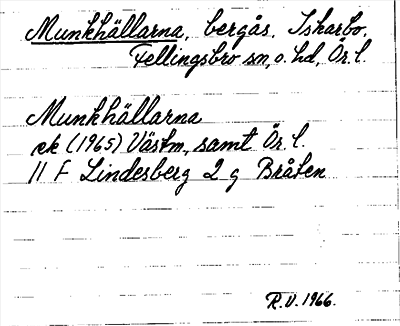 Munkhällarna, bergås, Iskärbo,
Fellingsbro sn, o. hd, Ör. l.
Munkhällarna
ek (1965) Västm., samt Ör. l.
11 F Lindesberg 2 g Bråten
R.V. 1966.